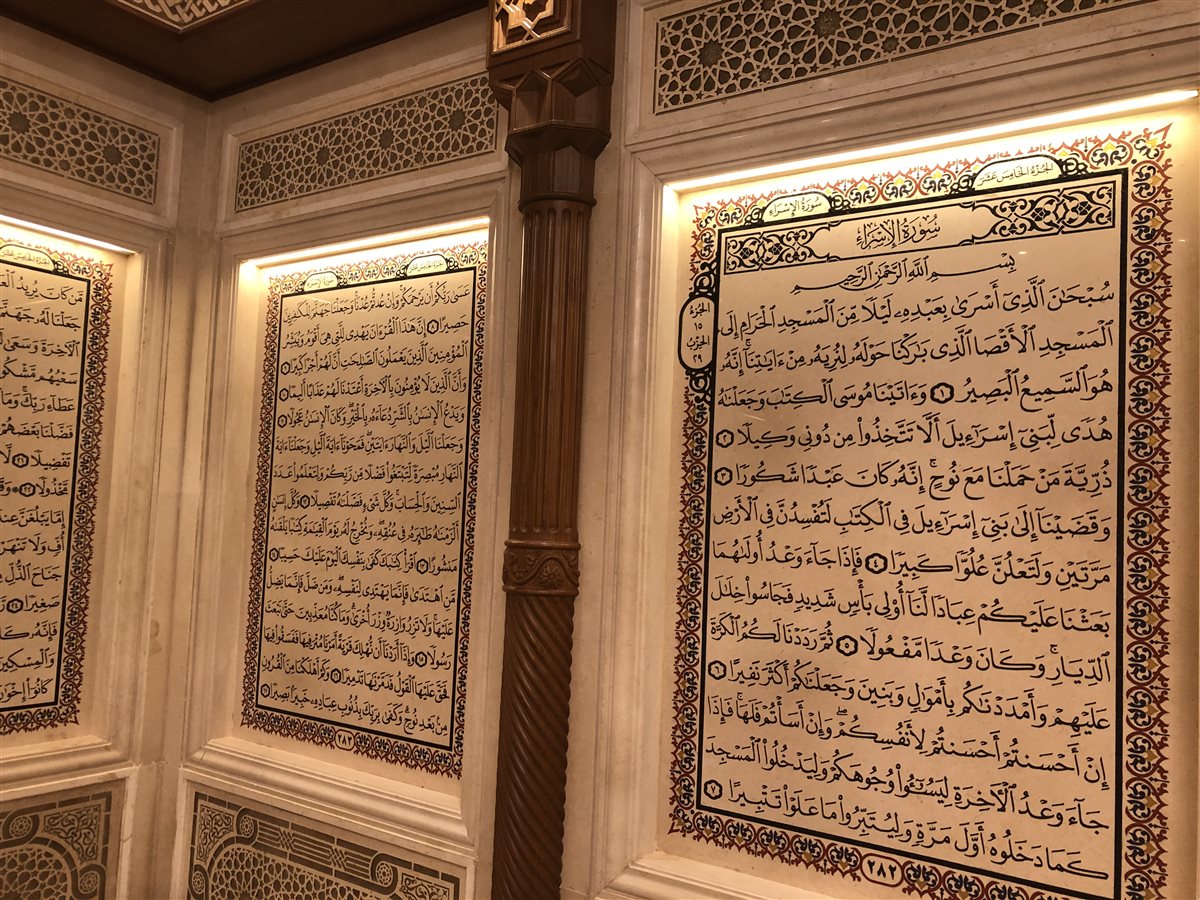 الجُزْءُ الخَامِسَ عَشَرَ سُورَةُ الإِسْرَاءِ
سُورَةُ الإِسْرَاءِ
بِسْمِ اللَّهِ الرَّحْمَٰنِ الرَّحِيمِ
سُبْحَٰنَ الَّذِي أَسْرَىٰ بِعَبْدِهِۦ لَيْلًا مِّنَ الْمَسْجِدِ الْحَرَامِ إِلَى
الْمَسْجِدِ الْأَقْصَا الَّذِي بَٰرَكْنَا حَوْلَهُۥ لِنُرِيَهُۥ مِنْ ءَايَٰتِنَا ۚ إِنَّهُۥ
هُوَ السَّمِيعُ الْبَصِيرُ ١ وَءَاتَيْنَا مُوسَى الْكِتَٰبَ وَجَعَلْنَٰهُ
هُدًى لِّبَنِي إِسْرَٰٓءِيلَ أَلَّا تَتَّخِذُوا۟ مِن دُونِي وَكِيلًا ٢
ذُرِّيَّةَ مَنْ حَمَلْنَا مَعَ نُوحٍ ۚ إِنَّهُۥ كَانَ عَبْدًا شَكُورًا ٣
وَقَضَيْنَآ إِلَىٰ بَنِيٓ إِسْرَٰٓءِيلَ فِي الْكِتَٰبِ لَتُفْسِدُنَّ فِي الْأَرْضِ
مَرَّتَيْنِ وَلَتَعْلُنَّ عُلُوًّا كَبِيرًا ٤ فَإِذَا جَآءَ وَعْدُ أُولَىٰهُمَا
بَعَثْنَا عَلَيْكُمْ عِبَادًا لَّنَآ أُو۟لِي بَأْسٍ شَدِيدٍ فَجَاسُوا۟ خِلَٰلَ
الدِّيَارِ ۚ وَكَانَ وَعْدًا مَّفْعُولًا ٥ ثُمَّ رَدَدْنَا لَكُمُ الْكَرَّةَ
عَلَيْهِمْ وَأَمْدَدْنَٰكُم بِأَمْوَٰلٍ وَبَنِينَ وَجَعَلْنَٰكُمْ أَكْثَرَ نَفِيرًا ٦
إِنْ أَحْسَنتُمْ أَحْسَنتُمْ لِأَنفُسِكُمْ ۖ وَإِنْ أَسَأْتُمْ فَلَهَا ۚ فَإِذَا
جَآءَ وَعْدُ الْءَاخِرَةِ لِيَسُۥٓـُٔوا۟ وُجُوهَكُمْ وَلِيَدْخُلُوا۟ الْمَسْجِدَ
كَمَا دَخَلُوهُ أَوَّلَ مَرَّةٍ وَلِيُتَبِّرُوا۟ مَا عَلَوْا۟ تَتْبِيرًا ٧
٢٨٢
الجزء
١٥
الحزب
٢٩
الجُزْءُ الخَامِسَ عَشَرَ سُورَةُ الإِسْرَاءِ
عَسَىٰ رَبُّكُمْ أَن يَرْحَمَكُمْ ۚ وَإِنْ عُدتُّمْ عُدْنَا ۘ وَجَعَلْنَا جَهَنَّمَ لِلْكَٰفِرِينَ
حَصِيرًا ٨ إِنَّ هَٰذَا الْقُرْءَانَ يَهْدِي لِلَّتِي هِيَ أَقْوَمُ وَيُبَشِّرُ
الْمُؤْمِنِينَ الَّذِينَ يَعْمَلُونَ الصَّٰلِحَٰتِ أَنَّ لَهُمْ أَجْرًا كَبِيرًا ٩
وَأَنَّ الَّذِينَ لَا يُؤْمِنُونَ بِالْءَاخِرَةِ أَعْتَدْنَا لَهُمْ عَذَابًا أَلِيمًا ١٠
وَيَدْعُ الْإِنسَٰنُ بِالشَّرِّ دُعَآءَهُۥ بِالْخَيْرِ ۖ وَكَانَ الْإِنسَٰنُ عَجُولًا ١١
وَجَعَلْنَا الَّيْلَ وَالنَّهَارَ ءَايَتَيْنِ ۖ فَمَحَوْنَآ ءَايَةَ الَّيْلِ وَجَعَلْنَآ ءَايَةَ
النَّهَارِ مُبْصِرَةً لِّتَبْتَغُوا۟ فَضْلًا مِّن رَّبِّكُمْ وَلِتَعْلَمُوا۟ عَدَدَ
السِّنِينَ وَالْحِسَابَ ۚ وَكُلَّ شَيْءٍ فَصَّلْنَٰهُ تَفْصِيلًا ١٢ وَكُلَّ إِنسَٰنٍ
أَلْزَمْنَٰهُ طَٰٓئِرَهُۥ فِي عُنُقِهِۦ ۖ وَنُخْرِجُ لَهُۥ يَوْمَ الْقِيَٰمَةِ كِتَٰبًا يَلْقَىٰهُ
مَنشُورًا ١٣ اقْرَأْ كِتَٰبَكَ كَفَىٰ بِنَفْسِكَ الْيَوْمَ عَلَيْكَ حَسِيبًا ١٤
مَّنِ اهْتَدَىٰ فَإِنَّمَا يَهْتَدِي لِنَفْسِهِۦ ۖ وَمَن ضَلَّ فَإِنَّمَا يَضِلُّ
عَلَيْهَا ۚ وَلَا تَزِرُ وَازِرَةٌ وِزْرَ أُخْرَىٰ ۗ وَمَا كُنَّا مُعَذِّبِينَ حَتَّىٰ نَبْعَثَ
رَسُولًا ١٥ وَإِذَآ أَرَدْنَآ أَن نُّهْلِكَ قَرْيَةً أَمَرْنَا مُتْرَفِيهَا فَفَسَقُوا۟ فِيهَا
فَحَقَّ عَلَيْهَا الْقَوْلُ فَدَمَّرْنَٰهَا تَدْمِيرًا ١٦ وَكَمْ أَهْلَكْنَا مِنَ الْقُرُونِ
مِنۢ بَعْدِ نُوحٍ ۗ وَكَفَىٰ بِرَبِّكَ بِذُنُوبِ عِبَادِهِۦ خَبِيرًۢا بَصِيرًا ١٧
٢٨٣
الجُزْءُ الخَامِسَ عَشَرَ
مَّن كَانَ يُرِيدُ الْعَا
جَعَلْنَا لَهُۥ جَهَنَّمَ
الْءَاخِرَةَ وَسَعَىٰ
سَعْيُهُم مَّشْكُو
عَطَآءِ رَبِّكَ ۚ وَمَا
فَضَّلْنَا بَعْضَهُمْ
تَفْضِيلًا ٢١ لَّا
مَّخْذُولًا ٢٢ وَقَ
إِمَّا يَبْلُغَنَّ عِندَ
أُفٍّ وَلَا تَنْهَرْ
جَنَاحَ الذُّلِّ
صَغِيرًا ٢٤
فَإِنَّهُۥ كَا
وَالْمِسْكِينَ
كَانُوٓا۟ إِخْوَٰنَ